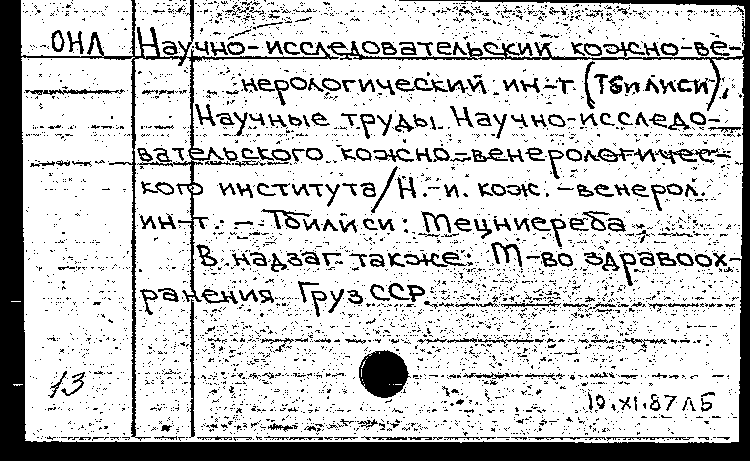 ОНЛ Научно-исследовательский кожно-ве-
нерологический ин-т (Тбилиси).
Научные труды Научно-исследо-
вательского кожно-венерологичес-
кого института/Н.-и. кож.-венерол.
ин-т. - Тбилиси: Мецниереба,
В надзаг. также: М-во здравоох-
ранения ГрузССР.
13
10.XI.87 ЛБ